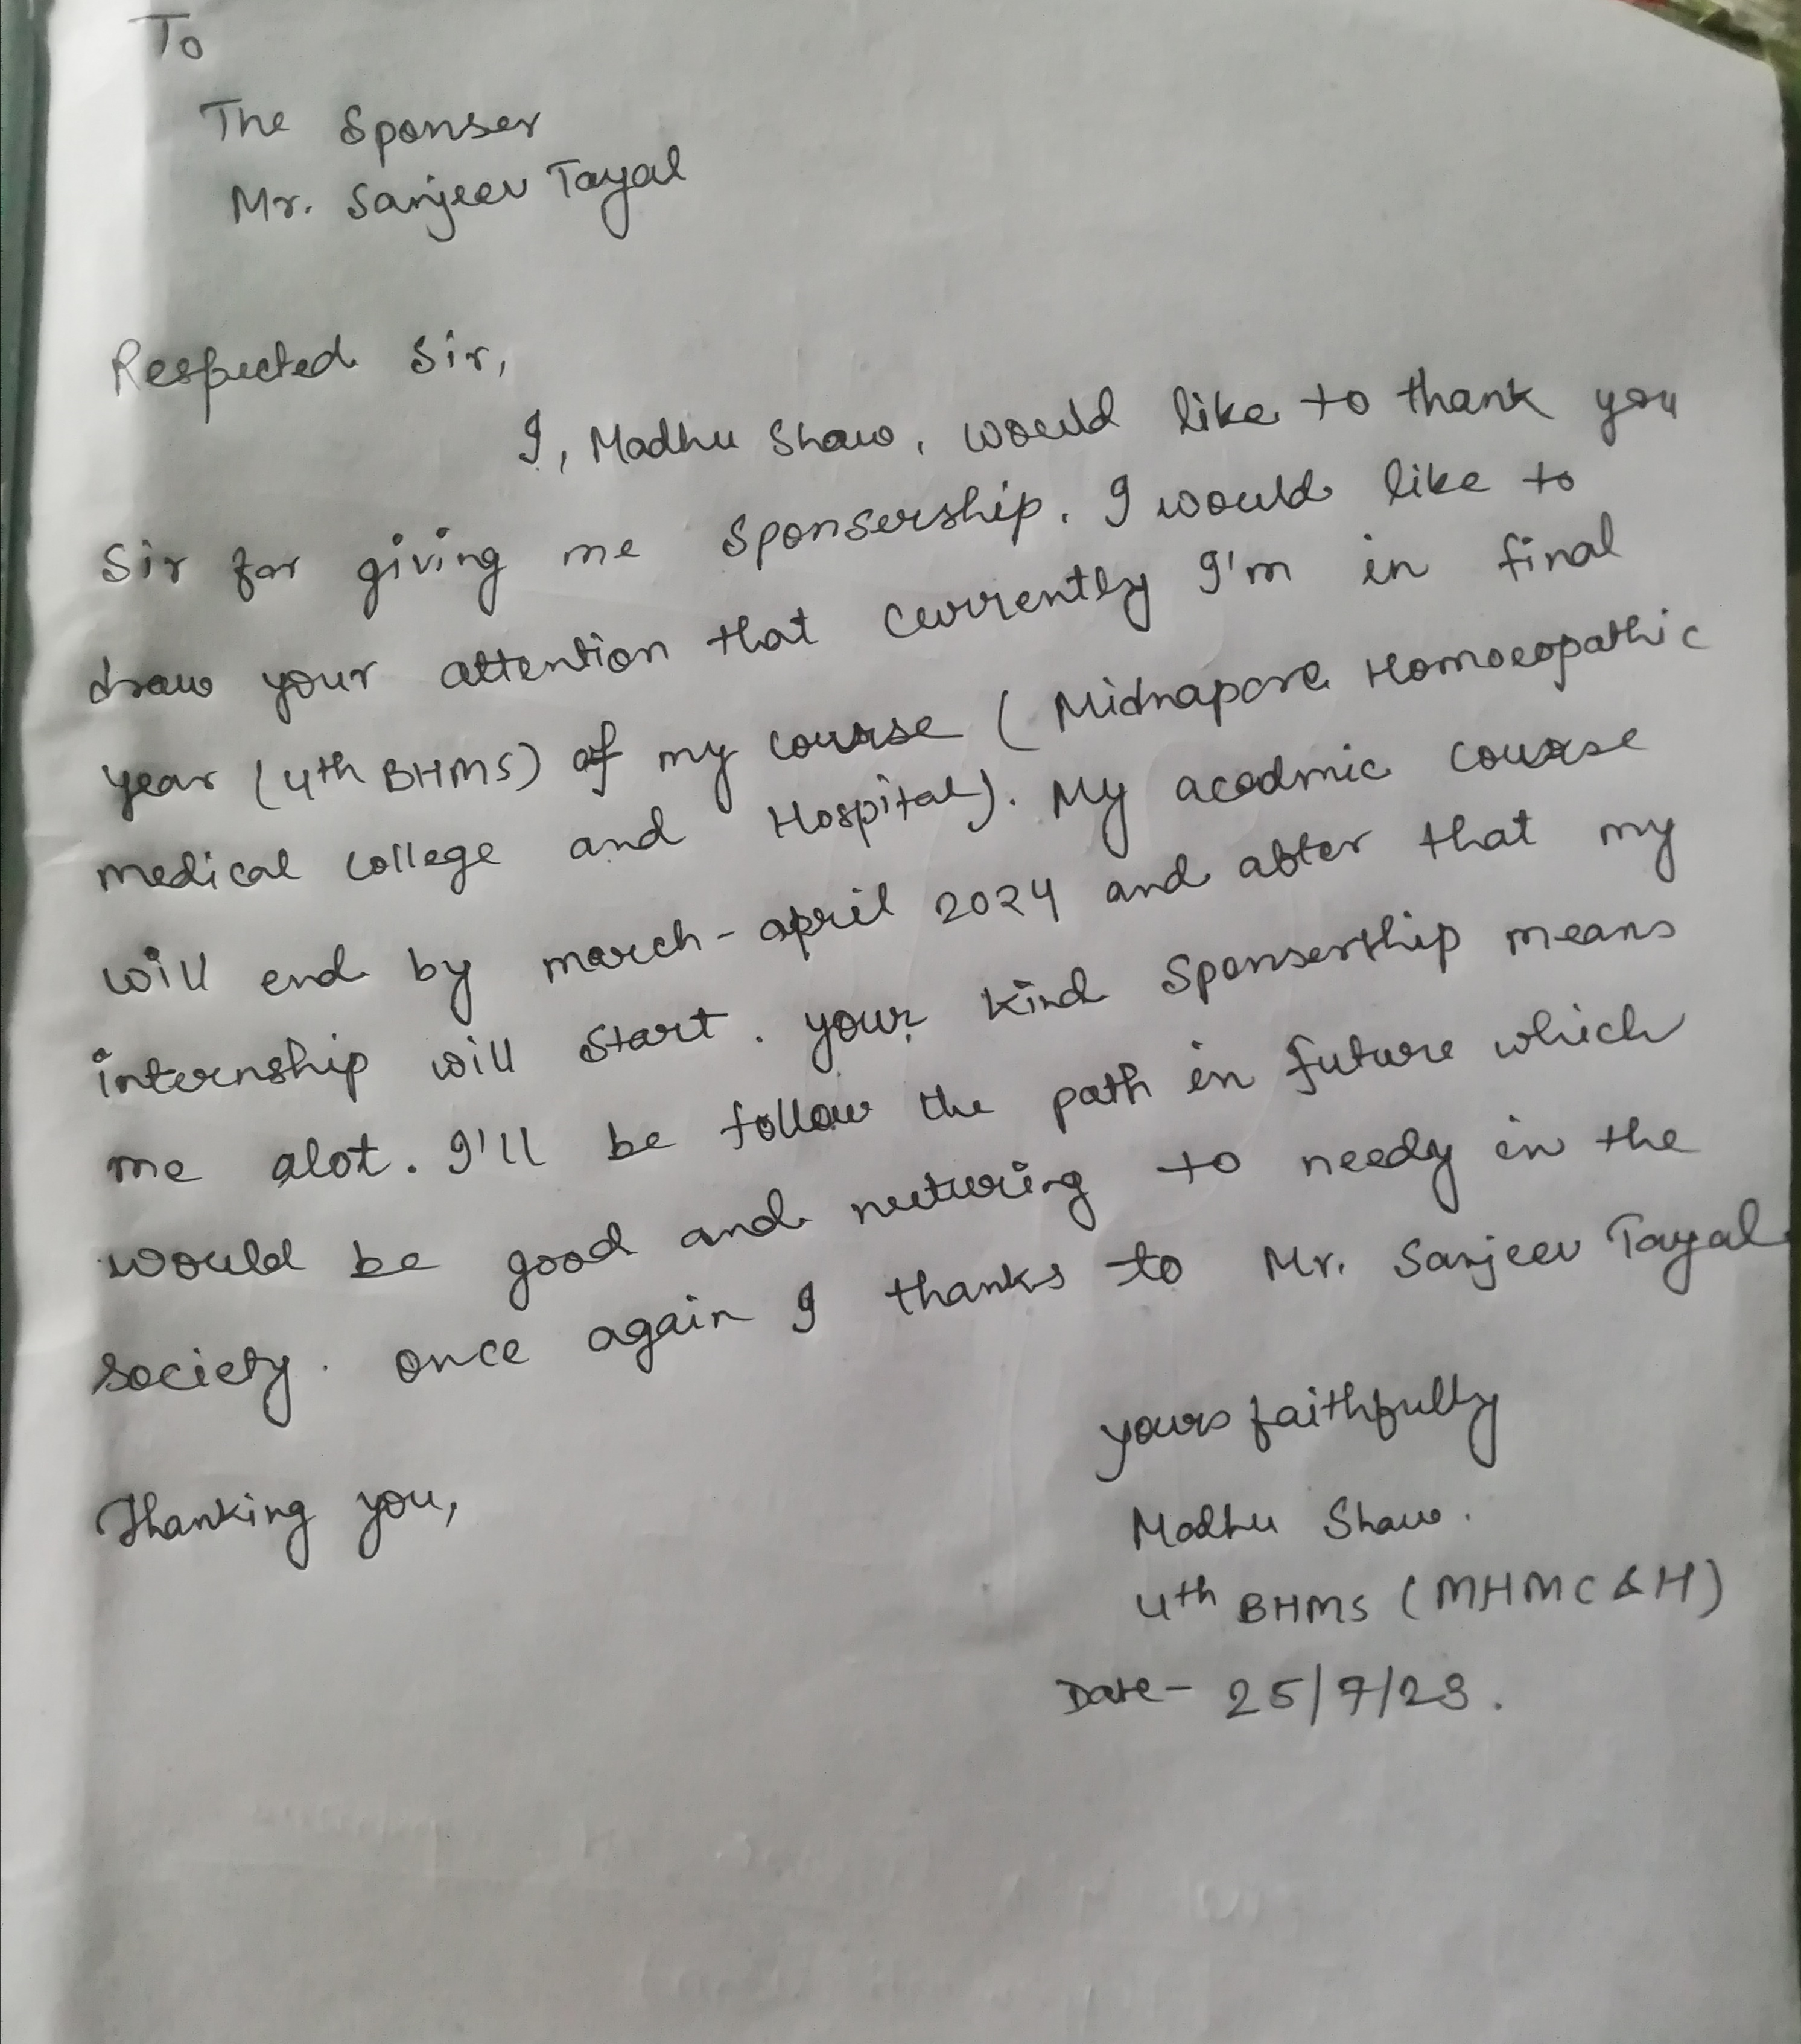 To
The Sponser
Mr. Sanjeev Tayal
Respected Sir,
I, Madhu Shaw, would like to thank you
Sir for giving me Sponsership. I would like to
draw your attention that currently I'm in final
year (4th BHMS) of my course (Midnapore Homoeopathic
medical college and Hospital). My acadmic course
will end by march-april 2024 and abter that my
internship will start. your kind Sponsership means
me alot. I'll be follow the path in future which
would be good and nuturing to needy in the
society. once again I thanks to Mr. Sanjeev Tayal.
yours faithfully
Thanking you,
Madhu Shaw.
4th BHMS (MHMC&H)
Date- 25/7/23.